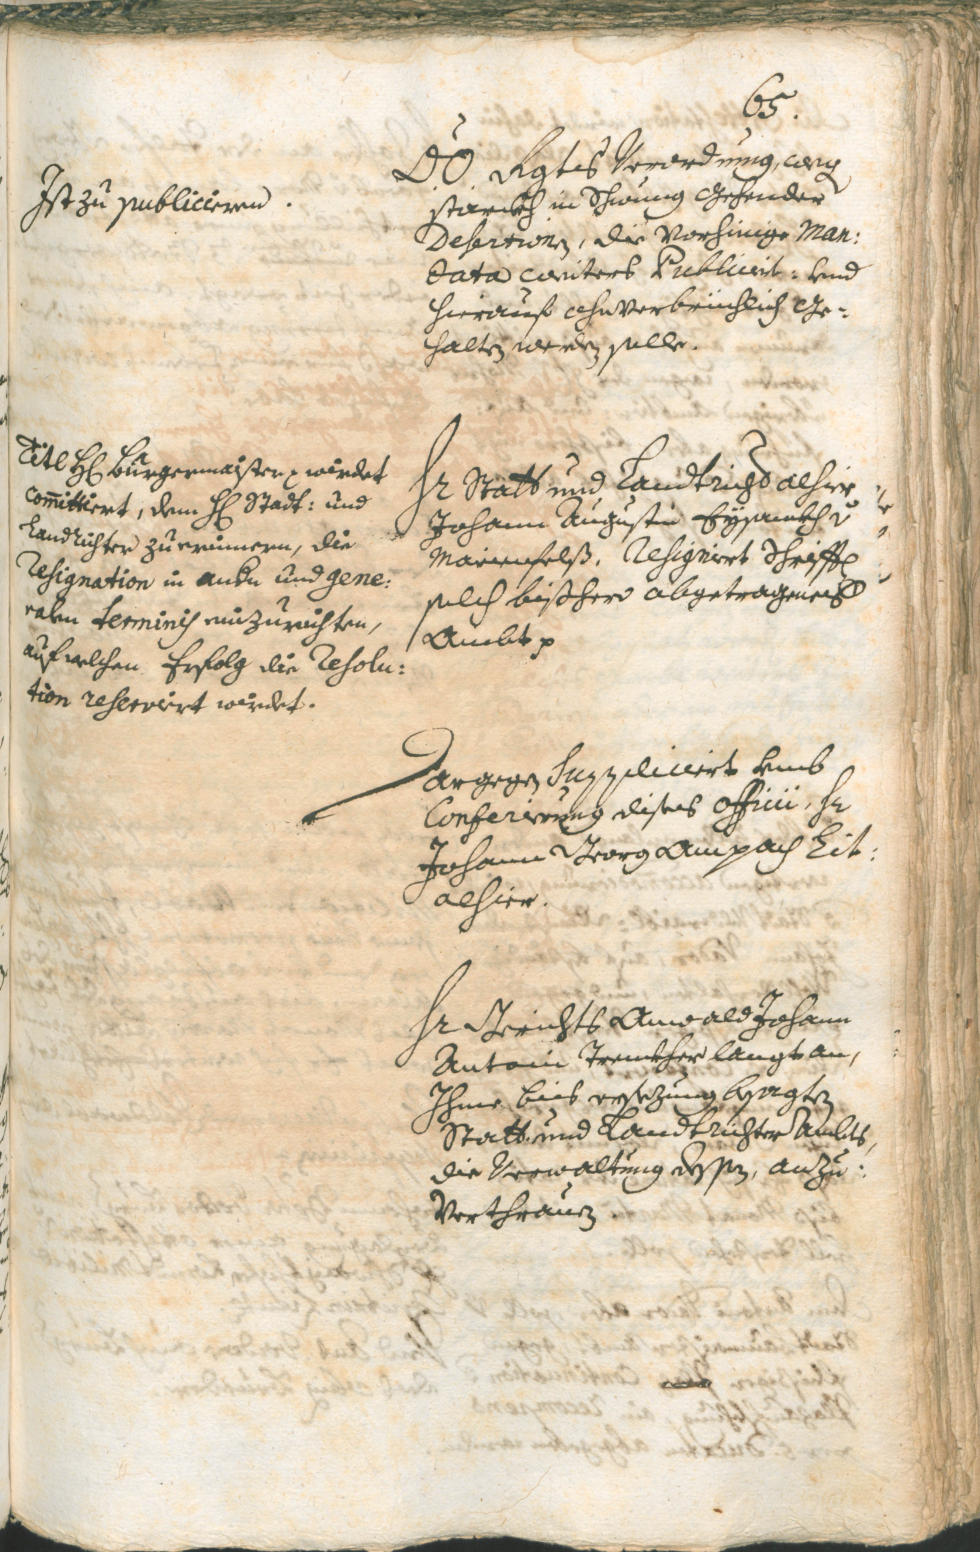 65.
Ist zu publicieren.
OÖ Rgts Verordnung, weg
starckh in Schwung gehender
Desertionen, die vorhinige Man:
data weiters Publiciert: und
hierauf ohnverbrichlich ge:
halten werden solle.
Titl H: Burgermaister wirdet
committiert, dem H: Stadt: und
Landrichter zu erinnern, die
Resignation in und gene:
ralen terminis einzurichten,
auf welchen Erfolg die Resolu:
tion reserviert wirdet.
Hr Statt und Landtrichter alhier
Johann Augustin
Marienfelß. Resigniert Schrifftl
solch bißhero abgetragenes
Ambt
Dargegen Suppliciert umb
Conferierung dises officii, Hr
Johann Georg Aupach Lit:
alhier.
Hr Gerichts Anwald Johann
Antoni langt an,
Ihme bis ersezung besagten
Statt: und Landtrichter Ambts,
die Verwaltung dessen, anzu:
Verthrauen.